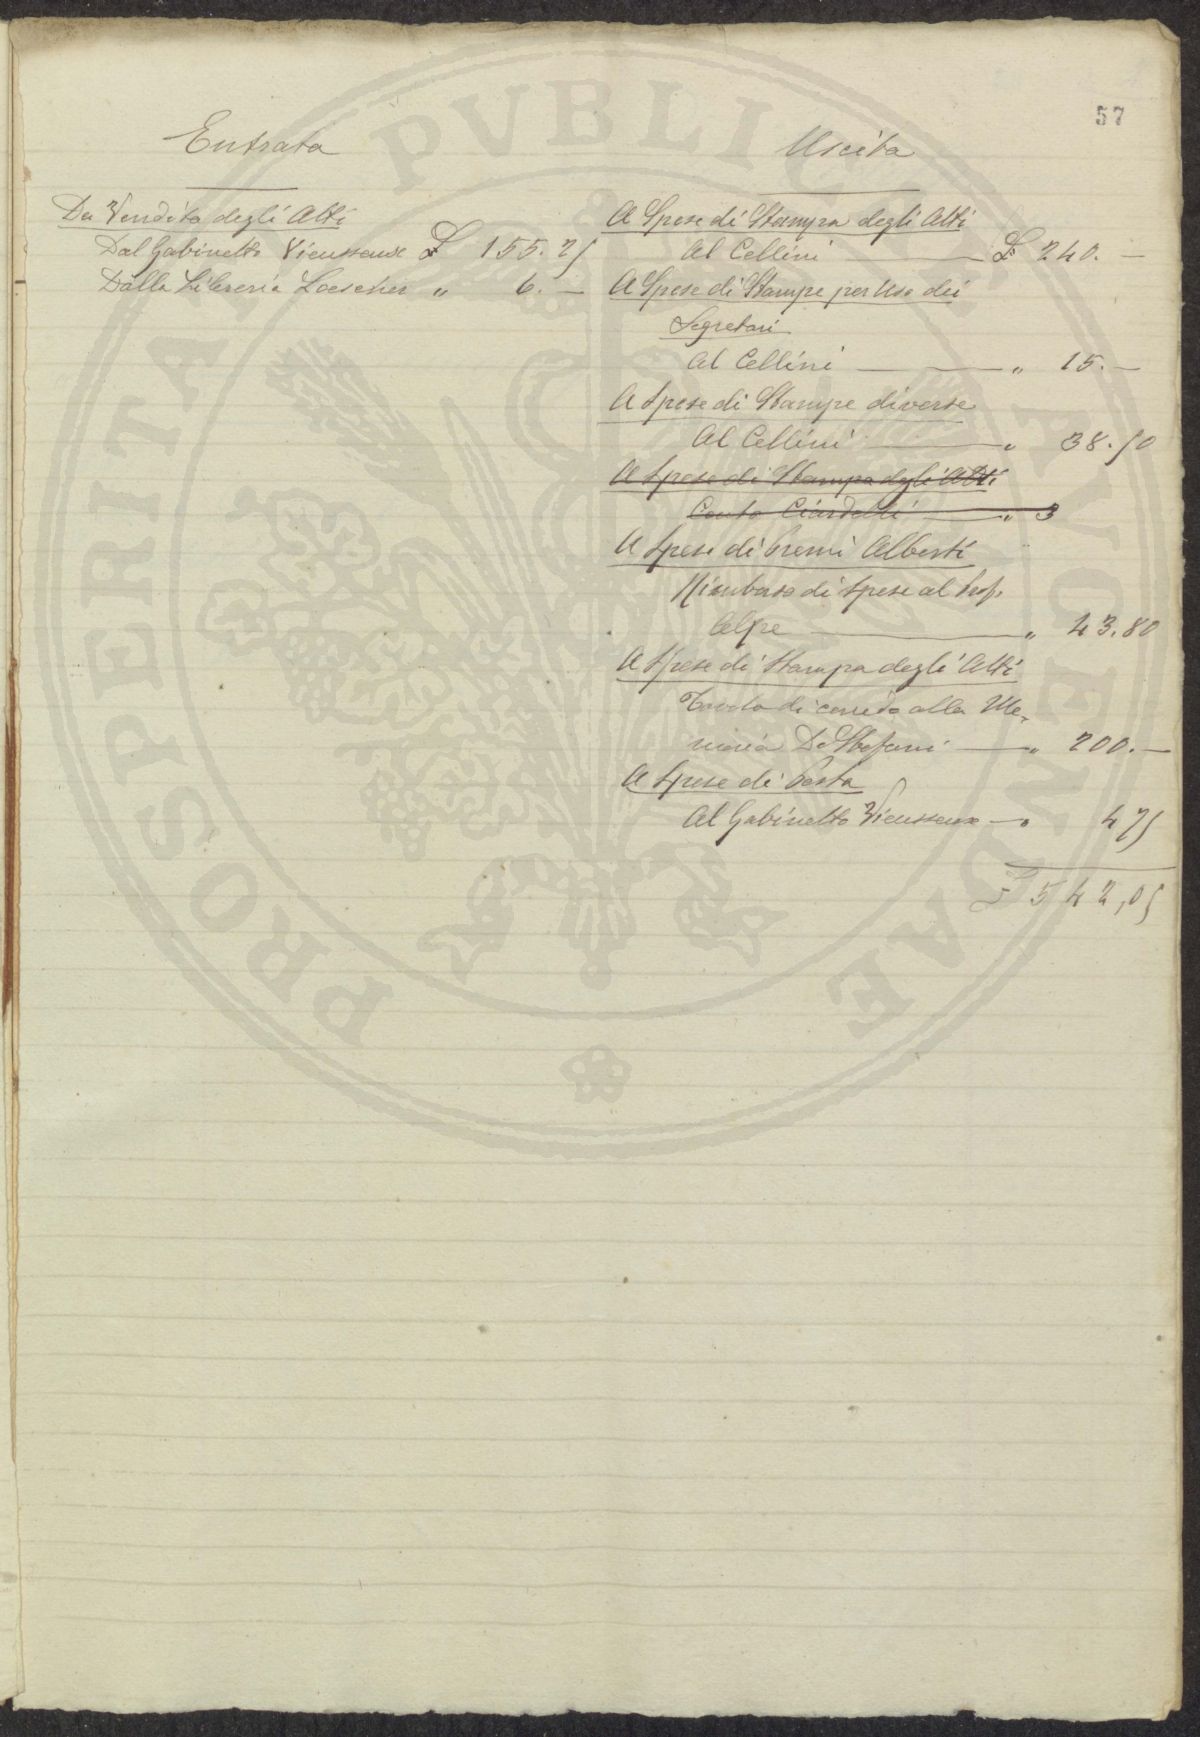 57
Entrata
Da Vendita degli Atti
Dal Gabinetto Vieusseux £ 155.25
Dalla Libreria Loescher „ 6. —
Uscita
A Spese di Stampa degli Atti
Al Cellini — £ 240. —
A Spese di Stampe per Uso dei
Segretari
Al Cellini — „ 15. —
A Spese di Stampe diverse
Al Cellini — „ 38.50
A Spese di Stampa degli Atti
Conto Ciardelli — „ 3
A Spese di Premi Alberti
Rimborso di Spese al Prof.
— „ 43.80
A Spese di Stampa degli Atti
Tavole di corredo alla Me-
moria De Stefani — „ 200. —
A Spese di Posta
Al Gabinetto Vieusseux — „ 4 75
£ 542,05
PROSPERITATI PVBLICAE AVGENDAE